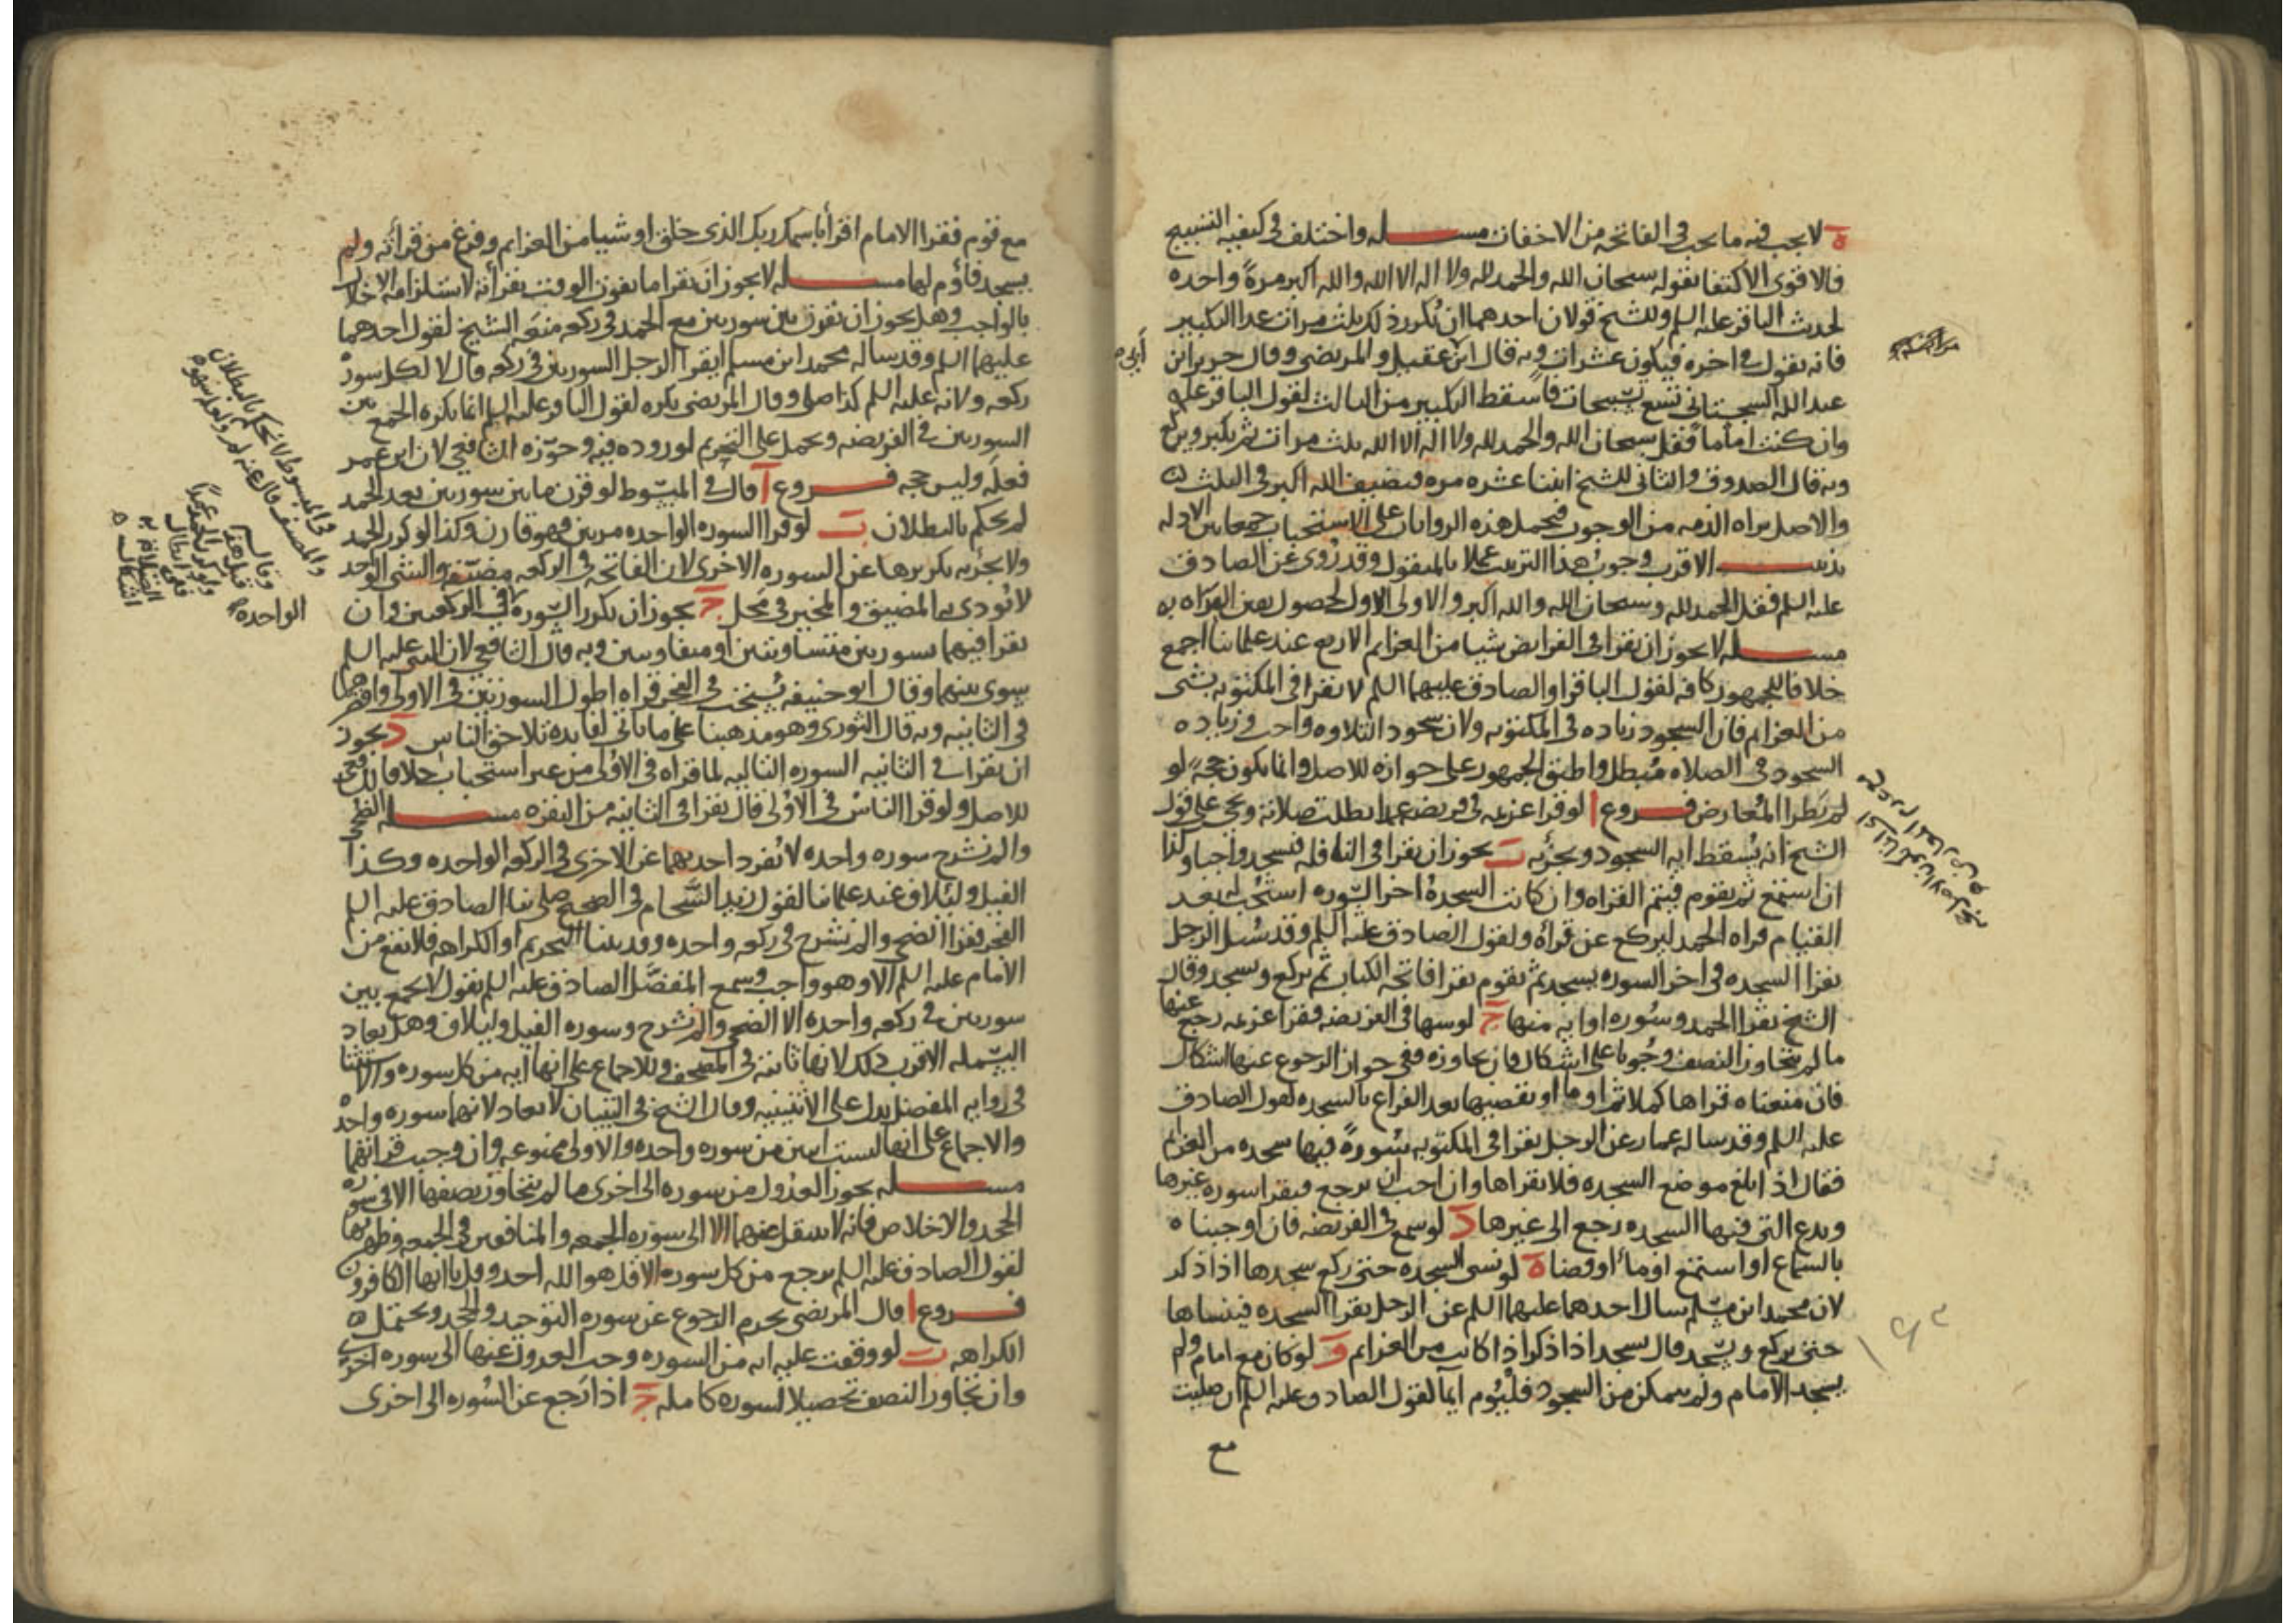 ه لا يجب فيه ما يجب في الفاتحه من الاخفات مسله واختلف في كيفيه التسبيح
فالاقوى الاكتفا بقوله سبحان الله والحمد لله ولا اله الا الله والله اكبر مرةً واحده
لحديث الباقر عليه السلم وللشيخ قولان احدهما ان تكرر ذلك ثلث مرات عدا التكبير
فانه يقول في اخره فيكون عشرات وبه قال ابن عقيل والمرتضى وقال حريز ابن
أبي
عبد الله السجستاني تسع تسبيحات فاسقط التكبير من الثالث لقول الباقر عليه
وان كنت اماما فقل سبحان الله والحمد لله ولا اله الا الله ثلث مرات ثم تكبر وتركع
وبه قال الصدوق والثاني للشيخ اثنتا عشره مره فيضيف الله اكبر في الثلث
والاصل براه الذمه من الوجوب فتحمل هذه الروايات على الاستحباب جمعا بين الادله
تذنيب الاقرب وجوب هذا الترتيب عملا بالمنقول وقد روى عن الصادق
عليه السلم فقل الحمد لله وسبحان الله والله اكبر والاولى الاول لحصول يقين البراه به
مسله لا يجوز ان يقرا في الفرايض شيا من العزايم الاربع عند علمائنا اجمع
خلافا للجمهور كافه لقول الباقر او الصادق عليهما السلم لا تقرا في المكتوبه بشى
من العزايم فان السجود زياده في المكتوبه ولان سجود التلاوه واجب وزياده
السجود في الصلاه مبطل واطبق الجمهور على جوازه للاصل وانما يكون حجه لو
لم يطرا المعارض فروع ا لو قرا عزيمه في فريضه عمدا بطلت صلاته ويجي على قول
الشيخ انه يسقط ايه السجود ويجزيه ب يجوز ان يقرا في النافله فيسجد واجبا وكذا
ان استمع ثم يقوم فيتم القراه وان كانت السجدة اخر السوره استحب له بعد
القيام قراه الحمد ليركع عن قراه ولقول الصادق عليه السلم وقد سئل الرجل
يقرا السجده في اخر السوره يسجد ثم يقوم يقرا فاتحه الكتاب ثم يركع ويسجد وقال
الشيخ يقرا الحمد وسوره او ايه منها ج لو سها في الفريضه فقرا عزيمه رجع عنها
ما لم يتجاوز النصف وجوبا على اشكال فان تجاوزه ففي جواز الرجوع عنها اشكال
فان منعناه قراها كملا ثم اوما او يقضيها بعد الفراغ بالسجده لقول الصادق
عليه السلم وقد ساله عمار عن الرجل يقرا في المكتوبه سورةً فيها سجده من العزايم
فقال اذا بلغ موضع السجده فلا يقراها وان احب ان يرجع فيقرا سوره غيرها
ويدع التي فيها السجده رجع الى غيرها د لو سمع في الفريضه فان اوجبناه
بالسماع او استمع اوماً او قضا ه لو نسى السجده حتى ركع سجدها اذا ذكر
لان محمد ابن مسلم سال احدهما عليهما السلم عن الرجل يقرا السجده فينساها
حتى يركع ويسجد قال يسجد اذا ذكر اذا كانت من العزايم و لو كان مع امام ولم
يسجد الامام ولم يتمكن من السجود فليوم ايما لقول الصادق عليه السلم ان صليت
مع
مع قوم فقرا الامام اقرأ باسم ربك الذي خلق او شيا من العزايم وفرغ من قرأته ولم
يسجد فأوم لها مسله لا يجوز ان يقرا ما يفوت الوقت بقرأته لاستلزامه الاخلال
بالواجب وهل يجوز ان يقرن بين سورتين مع الحمد في ركعه منعه الشيخ لقول احدهما
عليهما السلم وقد ساله محمد ابن مسلم ايقرا الرجل السورتين في ركعه قال لا لكل سورة
ركعه ولانه عليه السلم كذا صلى وقال المرتضى يكره لقول الباقر عليه السلم انما يكره الجمع بين
السورتين في الفريضه ويحمل على التحريم لوروده فيه وجوّزه الشافعي لان ابن عمر
فعله وليس حجه فروع آ قال في المبسوط لو قرن ما بين سورتين بعد الحمد
لم يحكم بالبطلان ب لو قرا السوره الواحده مرتين فهو قارن وكذا لو كرر الحمد
ولا يجزيه تكريرها عن السوره الاخرى لان الفاتحه في الركعه مضيّقه والشى الواحد
لا يودى به المضيق والمخير في محل ج يجوز ان يكرر السوره في الركعتين وان
يقرا فيهما بسورتين متساويتين او متفاوتين وبه قال الشافعي لان النبي عليه السلم
سوى بينهما وقال ابو حنيفه يستحب في الفجر قراه اطول السورتين في الاولى واقصرهما
في الثانيه وبه قال الثوري وهو مذهبنا على ما ياتي لفايده تلاحق الناس د يجوز
ان يقرا في الثانيه السوره التاليه لما قراه في الاولى من غير استحباب خلافا للشافعي
للاصل ولو قرا الناس في الاولى قال يقرا في الثانيه من البقره مسله الضحى
والم نشرح سوره واحده لا تفرد احديهما عن الاخرى في الركعه الواحده وكذا
الفيل ولئلاف عند علمائنا لقول زيد الشحام في الصحيح صلى بنا الصادق عليه السلم
الفجر فقرا الضحى والم نشرح في ركعه واحده وقد بينا التحريم او الكراهه فلا تقع من
الامام عليه السلم الا وهو واجب وسمع المفضل الصادق عليه السلم يقول لا يجمع بين
سورتين في ركعه واحده الا الضحى والم نشرح وسوره الفيل وليلاف وهل يعاد
البسمله الاقرب ذلك لانها ثابته في المصحف وللاجماع على انها ايه من كل سوره والاستثنا
في روايه المفضل يدل على الاثنينيه وقال الشيخ في التبيان لا تعاد لانهما سوره واحده
والاجماع على انها ليست ايتين من سوره واحده والاولى ممنوعه وان وجبت قراتهما
مسله يجوز العدول من سوره الى اخرى ما لم يتجاوز نصفها الا في سوره
الجحد والاخلاص فانه لا ينتقل عنهما الا الى سوره الجمعه والمنافقين في الجمعه وظهرها
لقول الصادق عليه السلم يرجع من كل سوره الا قل هو الله احد وقل يا ايها الكافرون
فروع ا قال المرتضى يحرم الرجوع عن سوره التوحيد والجحد ويحتمل
الكراهه ب لو وقفت عليه ايه من السوره وجب العدول عنها الى سوره اخرى
وان تجاوز النصف تحصيلا لسوره كامله ج اذا رجع عن السوره الى اخرى
في المبسوط لا يحكم بالبطلان
وقال
قبل هذا
ولو كرر الحمد عمداً
ففي ابطال
الصلاة به
اشكال
الواحده